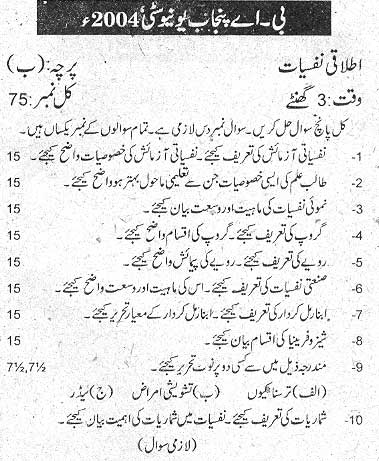 بی۔اے پنجاب یونیورسٹی 2004ء
اطلاقی نفسیات پرچہ: (ب)
وقت: 3 گھنٹے کل نمبر: 75
کل پانچ سوال حل کریں۔ سوال نمبر دس لازمی ہے۔ تمام سوالوں کے نمبر یکساں ہیں۔
1- نفسیاتی آزمائش کی تعریف کیجئے۔ نفسیاتی آزمائش کی خصوصیات واضح کیجئے۔ 15
2- طالب علم کی ایسی خصوصیات جن سے تعلیمی ماحول بہتر ہو واضح کیجئے۔ 15
3- نموئی نفسیات کی ماہیت اور وسعت بیان کیجئے۔ 15
4- گروپ کی تعریف کیجئے۔ گروپ کی اقسام واضح کیجئے۔ 15
5- رویے کی تعریف کیجئے۔ رویے کی پیمائش واضح کیجئے۔ 15
6- صنعتی نفسیات کی تعریف کیجئے۔ اس کی ماہیت اور وسعت واضح کیجئے۔ 15
7- ابنارمل کردار کی تعریف کیجئے۔ ابنارمل کردار کے معیار تحریر کیجئے۔ 15
8- شیزوفرینیا کی اقسام بیان کیجئے۔ 15
9- مندرجہ ذیل میں سے کسی دو پر نوٹ تحریر کیجئے۔ 7½,7½
(الف) ترسناکیوں (ب) تشویشی امراض (ج) لیڈر
10- شماریات کی تعریف کیجئے۔ نفسیات میں شماریات کی اہمیت بیان کیجئے۔
(لازمی سوال)